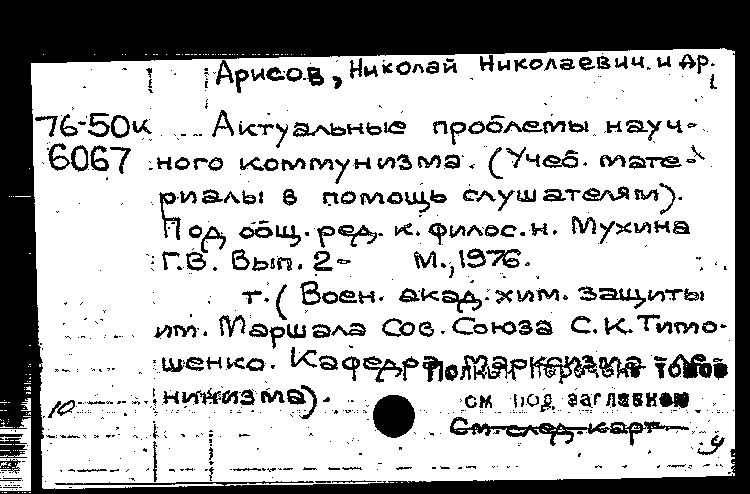 Арисов, Николай Николаевич и др.
76-50к Актуальные проблемы науч-
6067 ного коммунизма. (Учеб. мате-
риалы в помощь слушателям).
Под общ. ред. к. филос. н. Мухина
Г.В. Вып. 2- М., 1976.
т. (Воен. акад. хим. защиты
им. Маршала Сов. Союза С.К. Тимо-
шенко. Кафедра марксизма-ле-
нинизма).
Полный перечень томов
см под заглавием
См. след. карт.
10